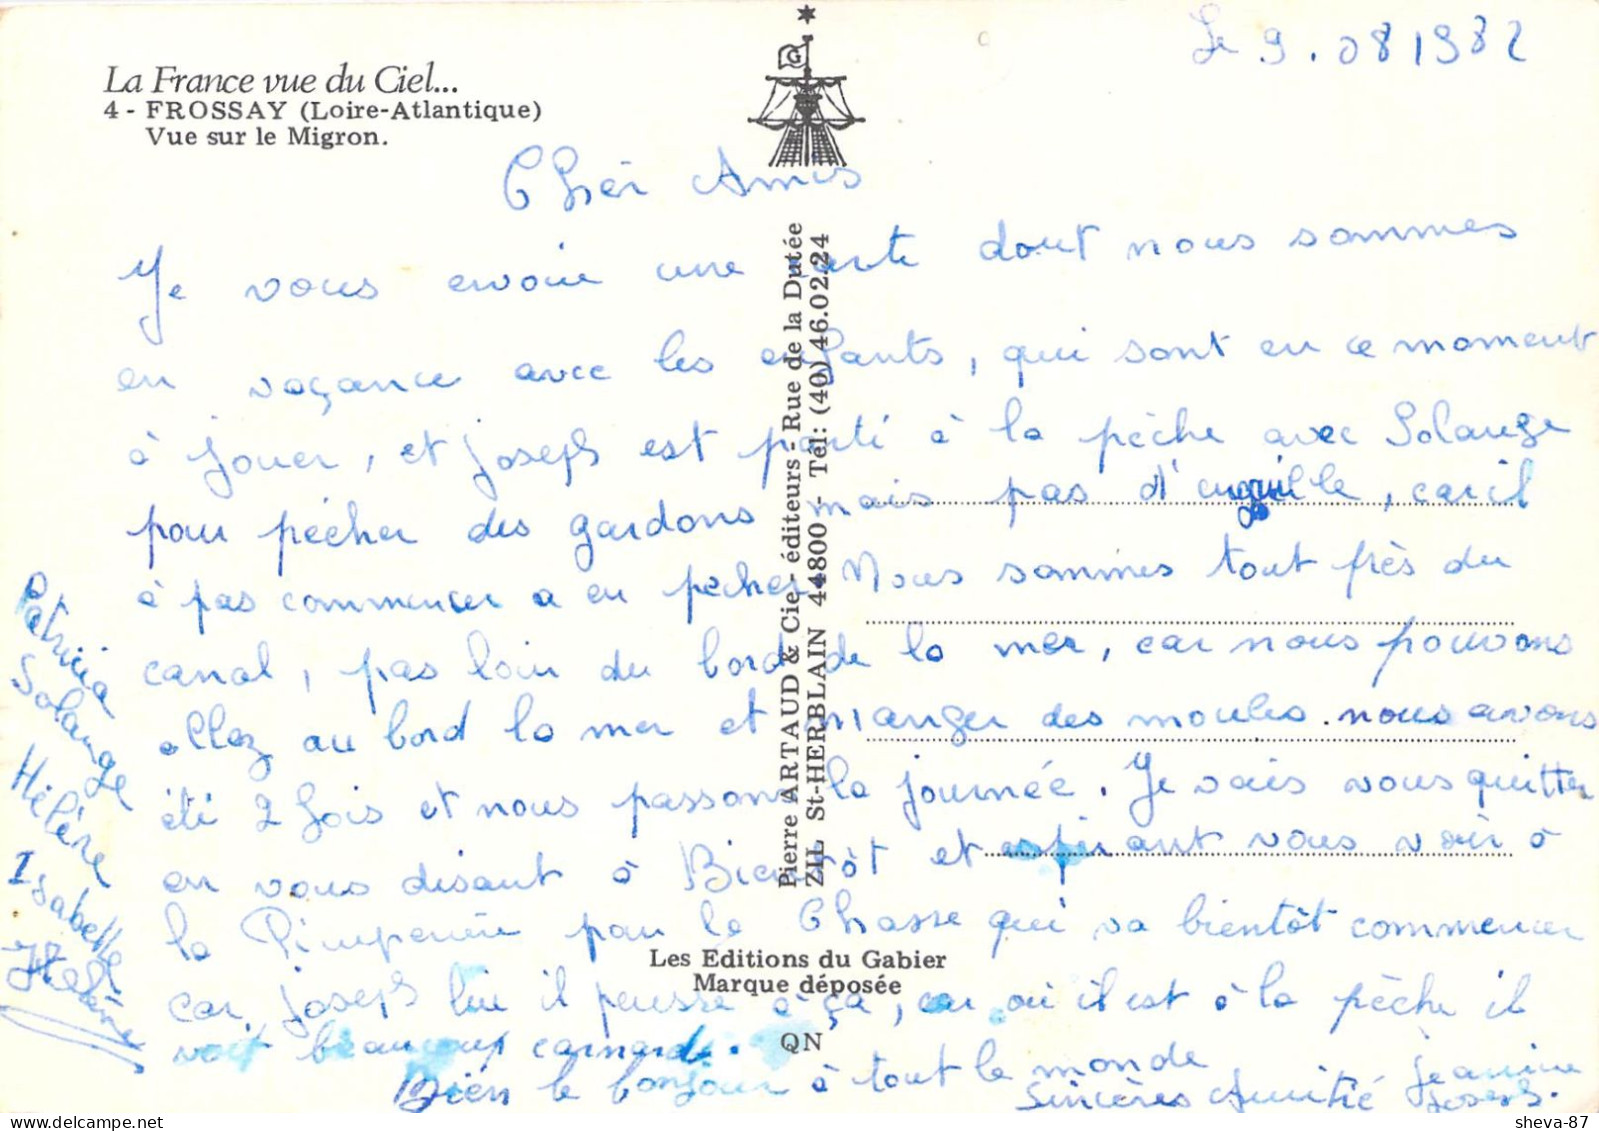 Le 9.081982
La France vue du Ciel...
4 - FROSSAY (Loire-Atlantique)
Vue sur le Migron.
Chér Amis
Je vous envoie une carte dont nous sommes
en vaçance avec les enfants, qui sont en ce moment
à jouer, et joseph est parti à la pèche avec Solange
pour pécher des gardons mais pas d'enguille, car il
à pas commencer a en pecher. Nous sommes tout près du
canal, pas loin du bord de la mer, car nous pouvons
allez au bord la mer et manger des moules. nous avons
été 2 fois et nous passons la journée. Je vais vous quitter
en vous disant à Bientôt et espérant vous voir à
la Pimpenière pour la Chasse qui va bientôt commencer
car joseph lui il pensse à ça, car où il est à la pèche il
voit beaucoup carnards.
Bien le bonjour à tout le monde
Sincères Amitié jeanine
joseph.
Patricia
Solange
Hélène
Isabelle
Hélène
Pierre ARTAUD & Cie - éditeurs - Rue de la Dutée
ZIL St-HERBLAIN 44800 - Tél: (40) 46.02.24
Les Editions du Gabier
Marque déposée
QN
sheva-87